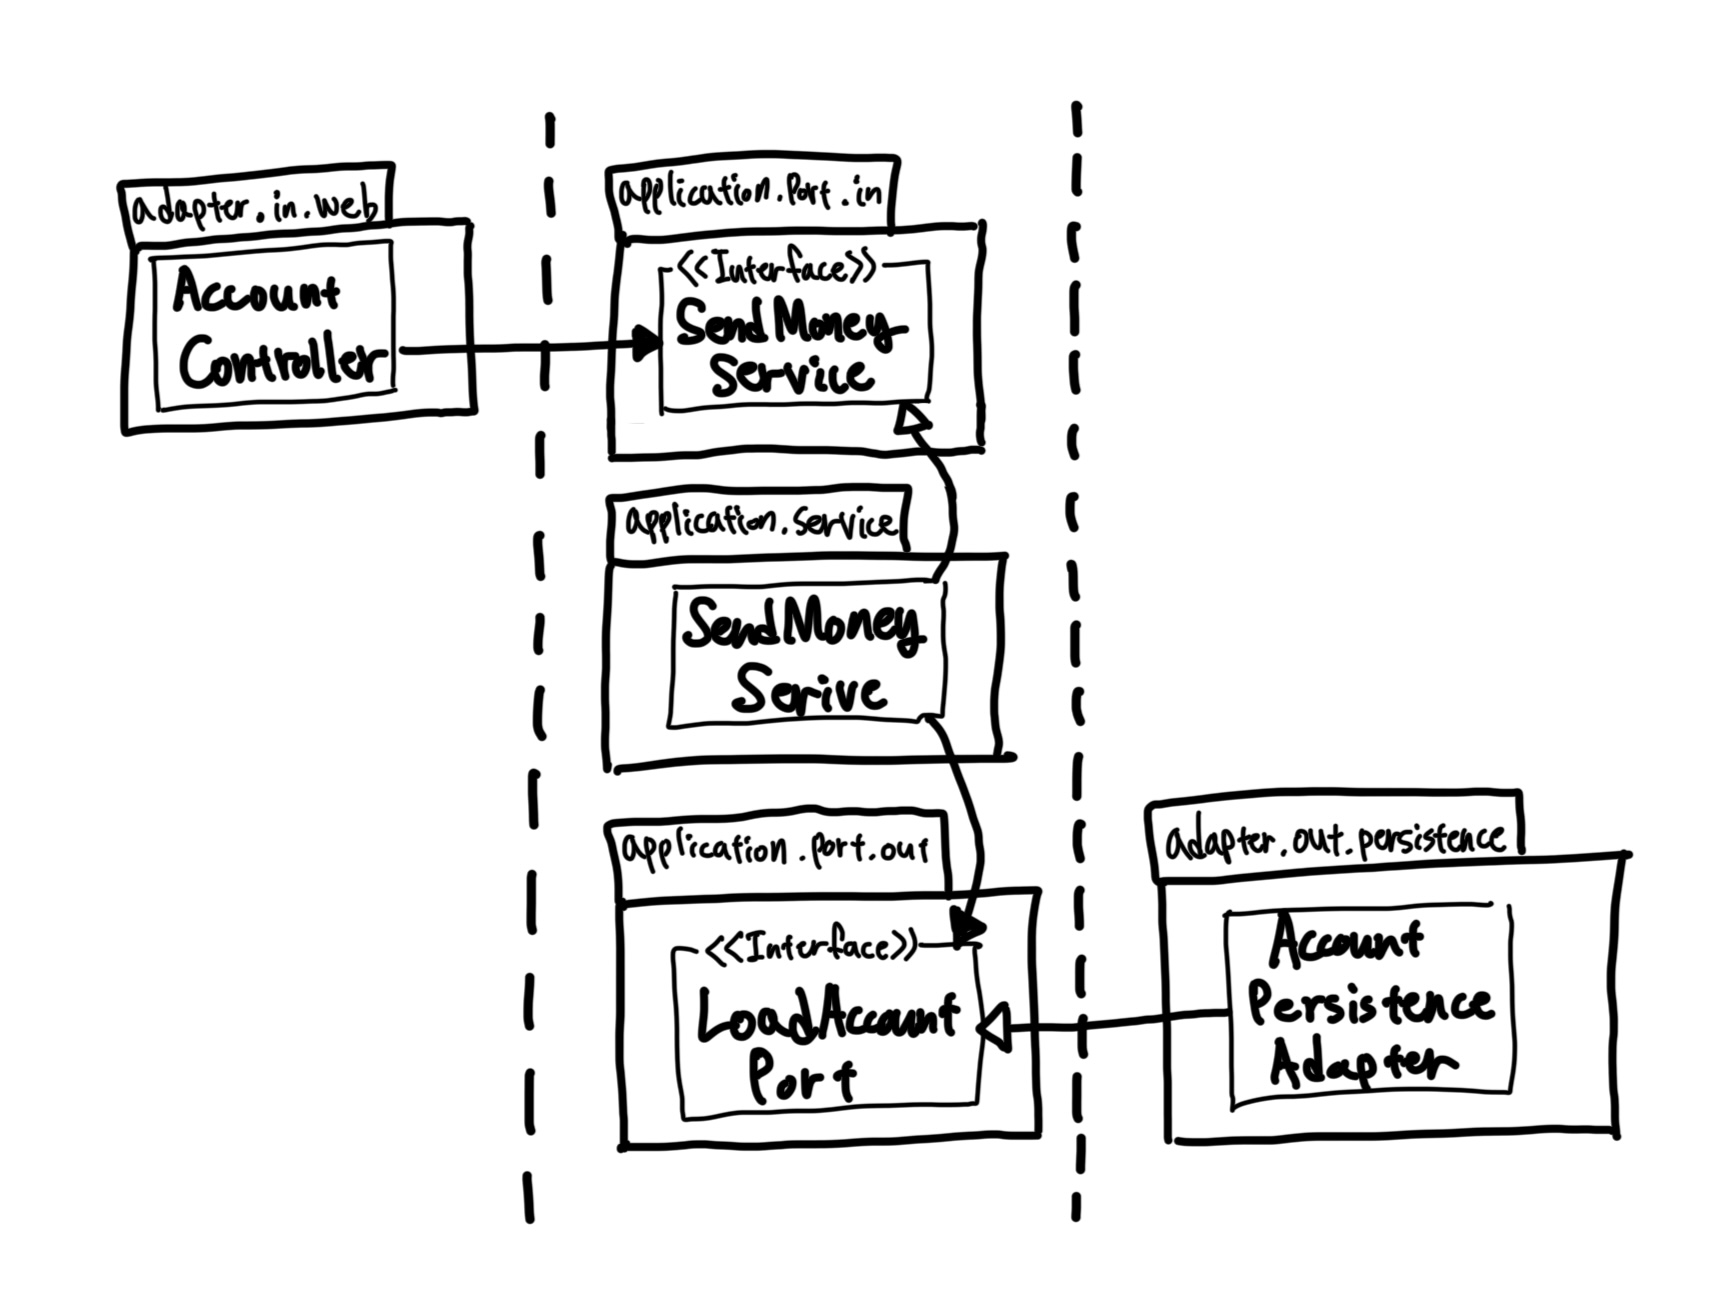 adapter.in.web
Account
Controller
application.port.in
<<Interface>>
SendMoney
Service
application.service
SendMoney
Serive
application.port.out
<<Interface>>
LoadAccount
Port
adapter.out.persistence
Account
Persistence
Adapter